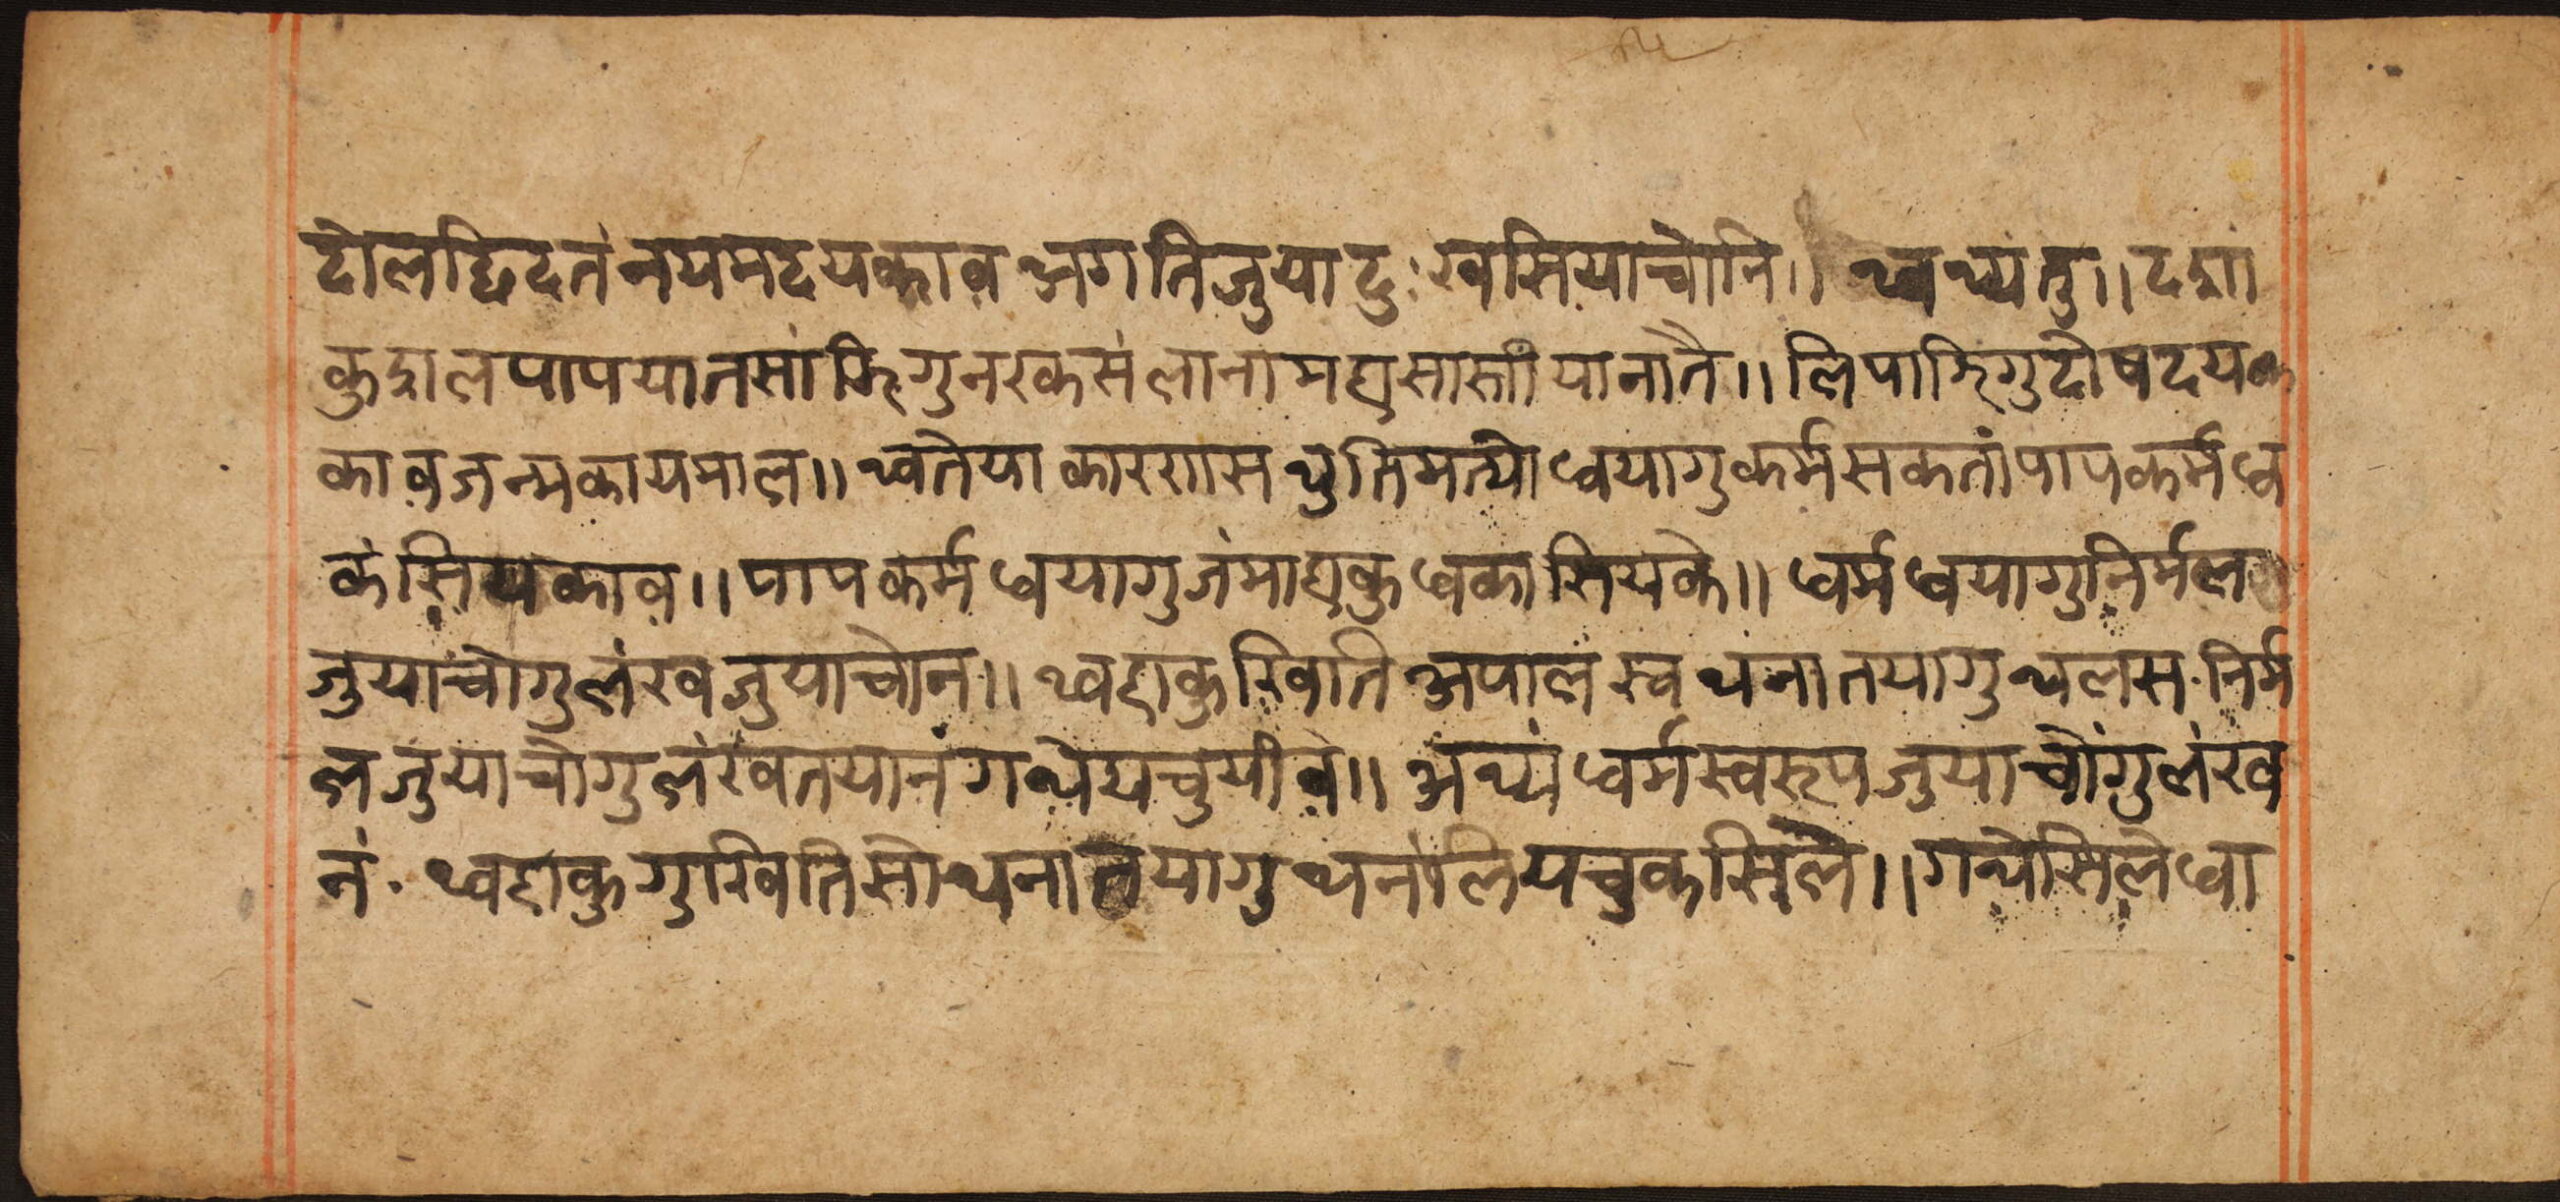 दोलछिदतं नयमदयकाव अगतिजुया दुःखसियाचोनि ॥ थ्वथ्यंतु ॥ दशा
कुशल पापयातसां झिगु नरकसं लानामह्य सास्तीयानातै ॥ लिपा झिगु दोषदयक
काव जन्मकायमाल ॥ थ्वतेया कारणस थुतिमत्यो धयागु कर्मसकतां पापकर्म धि
कं सियकाव ॥ पापकर्म धयागु जंमाह्यकु धका सियके ॥ धर्म धयागु निर्मल
जुयाचोगु लंखजुयाचोन ॥ थ्वह्याकु खिति अपालं स्वथनातयागु थलस · निर्म
ल जुयाचोगु लंखतयानं गथे यचुयीव ॥ अथ्यं धर्मस्वरूप जुयाचोंगु लंख
नं · थ्वह्याकुगु खितिसोथनातयागु थनंलि यचुक सिले ॥ गथे सिले धा